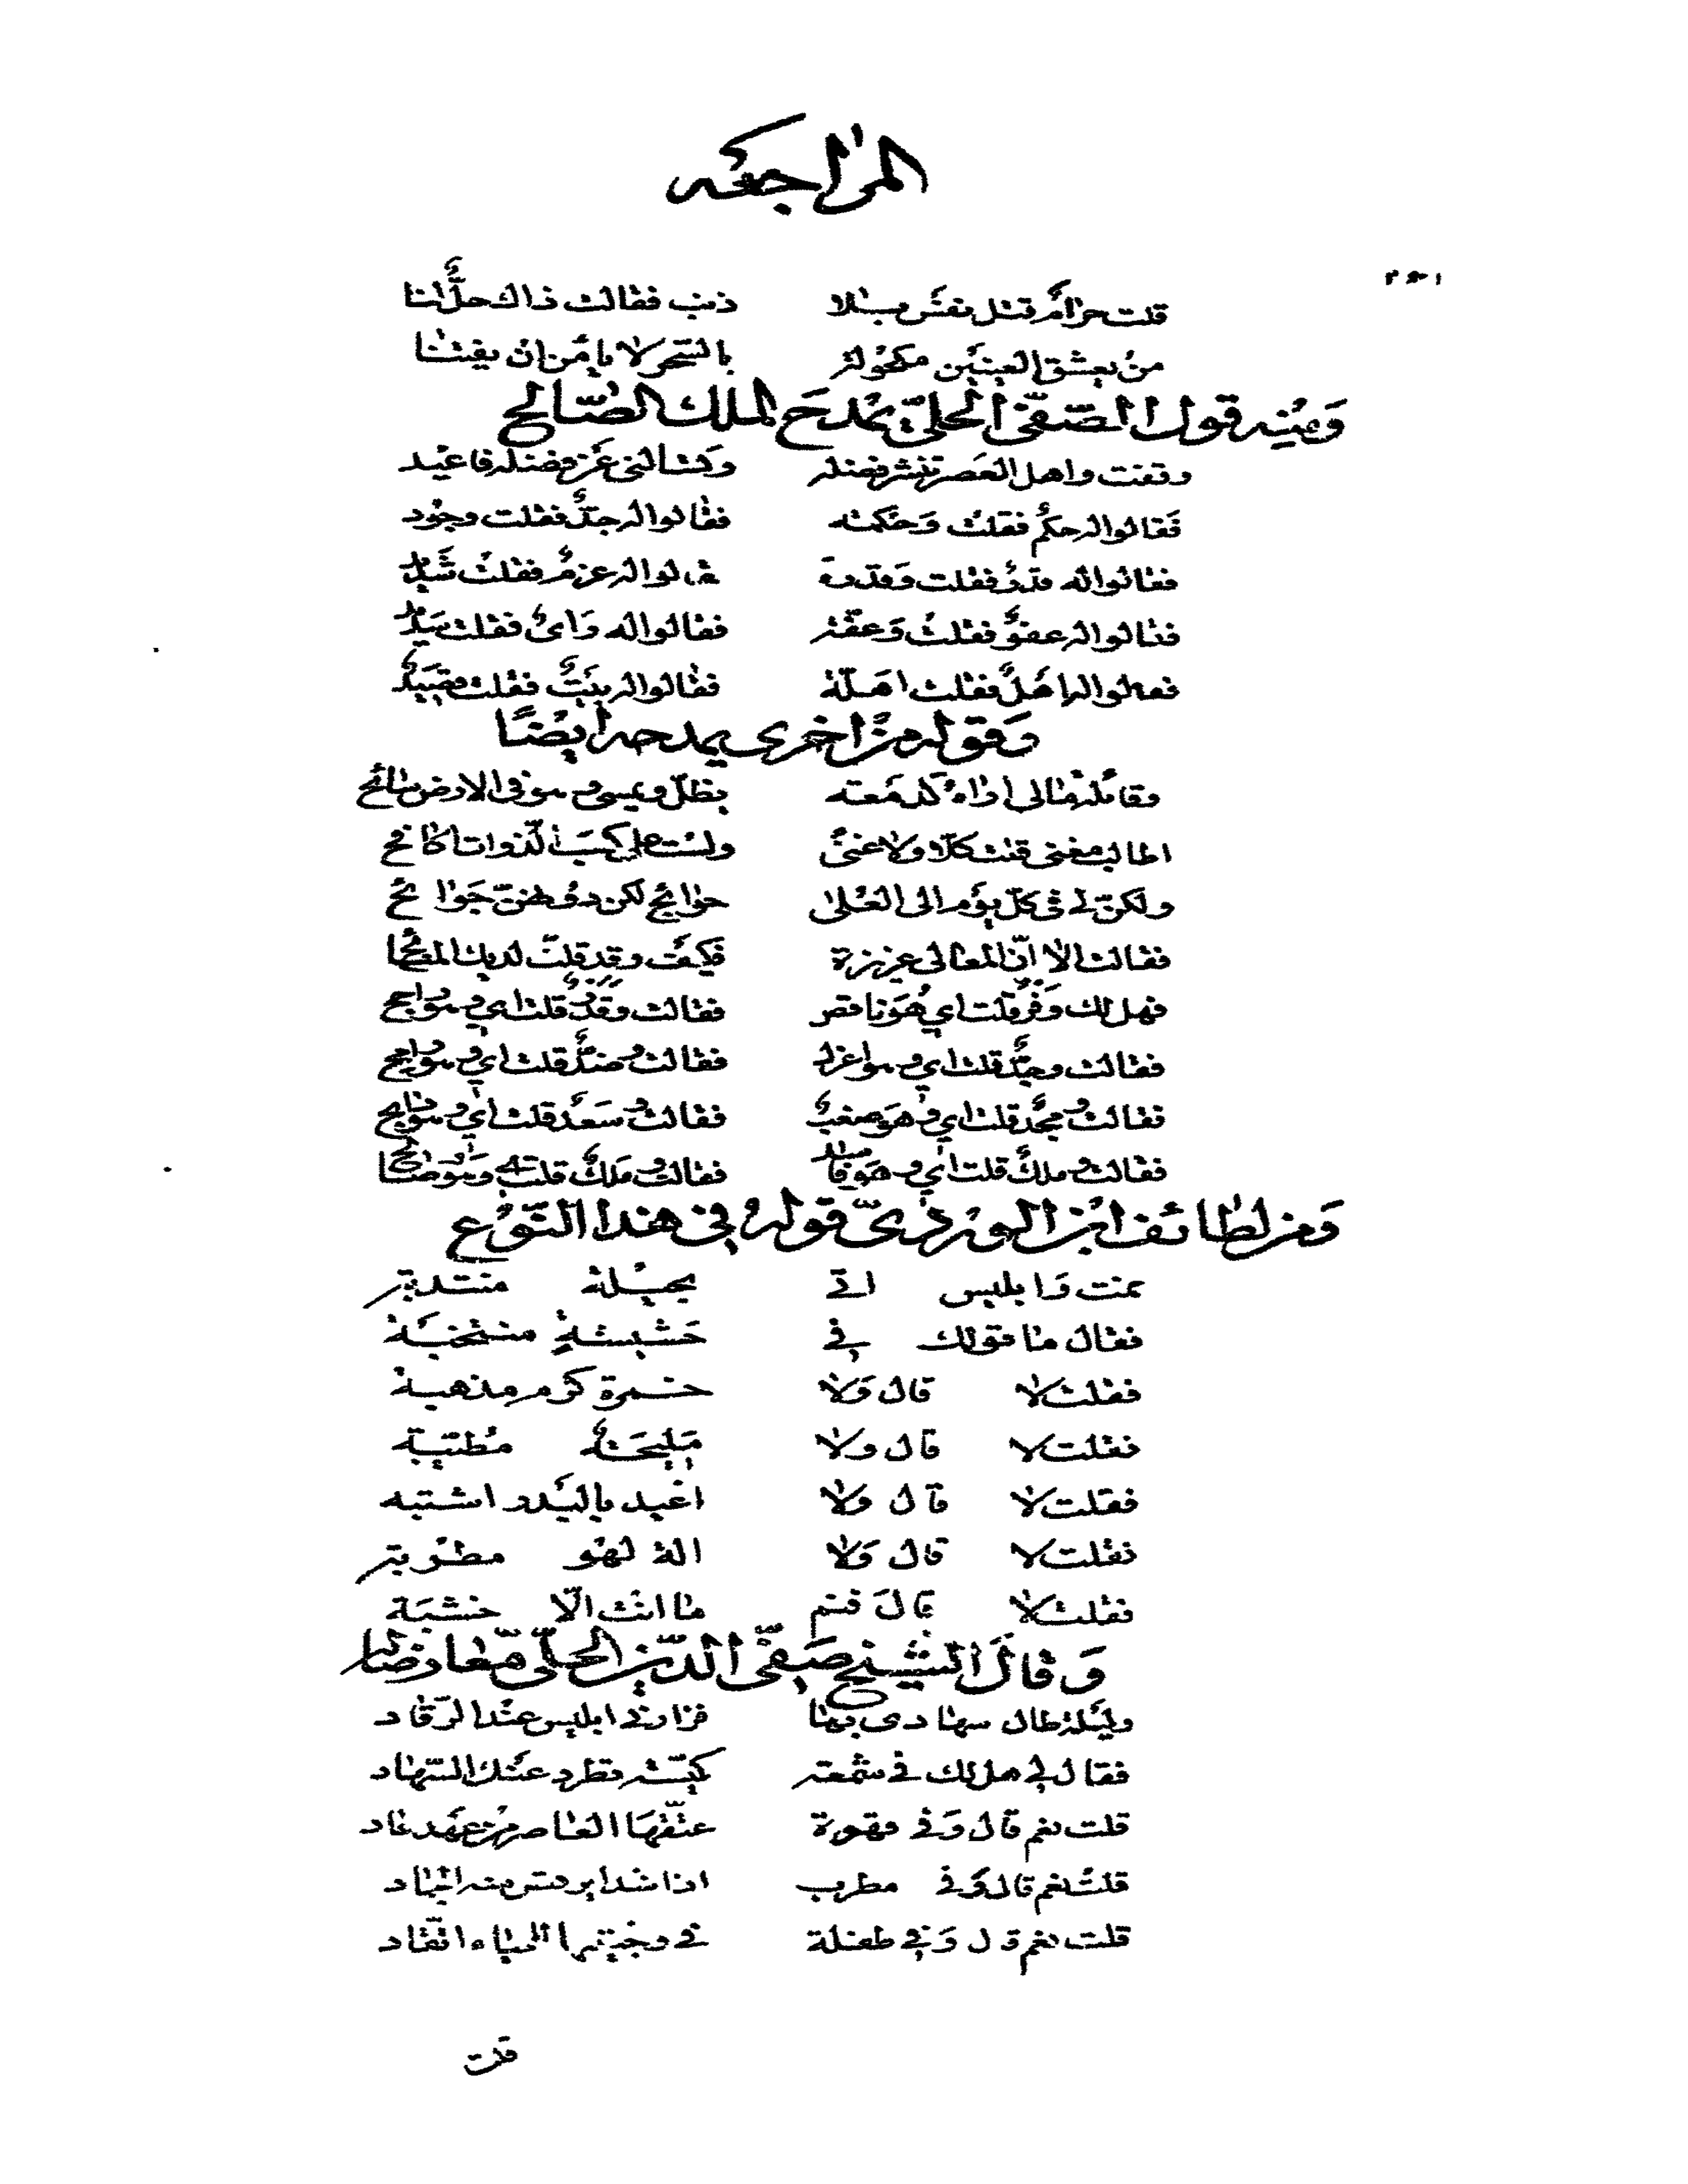 المراجعه
قلت حرام قتل نفس بلا ذنب فقالت ذاك حل لنا
من يعشق العينين مكحولة بالسحر لا يامن ان يفتنا
ومنه قول الصفى الحلى يمدح الملك الصالح
وقفت واهل العصر تنشر فضله وتسالنى عن فضله فاعيد
فقالوا له حكم فقلت وحكمه فقالوا له جد فقلت وجود
فقالوا له قدر فقلت وقدرة فقالوا له عزم فقلت شديد
فقالوا له عفو فقلت وعفة فقالوا له راى فقلت سديد
فقالوا له اهل فقلت اهلة فقالوا له بيت فقلت قصيد
وقوله من اخرى يمدحه ايضًا
وقائلة مالى اراه كدمعته يظل ويمسى وهو فى الارض سائح
اطالب مغنى قلت كلا ولا غنى ولست على كسب اللذاذات كافح
ولكن لى فى كل يوم الى العلى حوائج لكن دونهن جوائح
فقالت الا ان المعالى عزيزة فكيف وقد قلت لديك المنائح
فهل لك وفر قلت اى وهو ناقص فقالت وقدر قلت اى وهو راجح
فقالت وجد قلت اى وهو اعزل فقالت وضد قلت اى وهو رامح
فقالت ومجد قلت اى وهو صعب فقالت وسعد قلت اى وهو ذابح
فقالت وملك قلت اى وهو فاسد فقالت وملك قلت وهو صالح
ومن لطائف ابن الوردىّ قوله فى هذا النوع
نمت وابليس اتى بحيلة منتدبة
فقال ما قولك فى حشيشة منتخبة
فقلت لا قال ولا خمرة كرم مذهبة
فقلت لا قال ولا مليحة مطيبة
فقلت لا قال ولا اغيد بالبدر اشتبه
فقلت لا قال ولا الة لهو مطربة
فقلت لا قال فنم ما انت الا خشبة
وقال الشيخ صفى الدين الحلى معارضا له
وليلة طال سهادى بها فزارنى ابليس عند الرقاد
فقال لى هل لك فى شمعة كبسة تطرد عنك السهاد
قلت نعم قال وفى قهوة عتقها العاصر من عهد عاد
قلت نعم قال وفى مطرب اذا شدا يرقص منه الجماد
قلت نعم قال وفى طفلة فى وجنتيها للحياء اتقاد
قلت